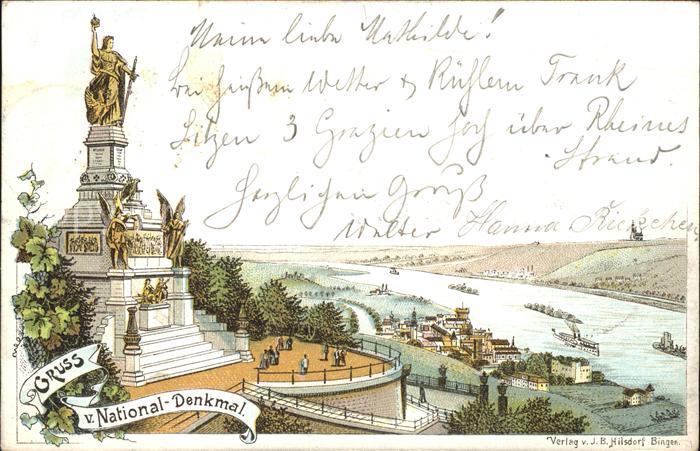 Meine liebe Mathilde!
Bei heißem Wetter & Kühlem Trank
Sitzen 3 Grazien hoch über Rheines
Strand.
Herzlichen Gruß
Walter Hanna
GRUSS
v. National-Denkmal.
Verlag v. J. B. Hilsdorf Bingen.